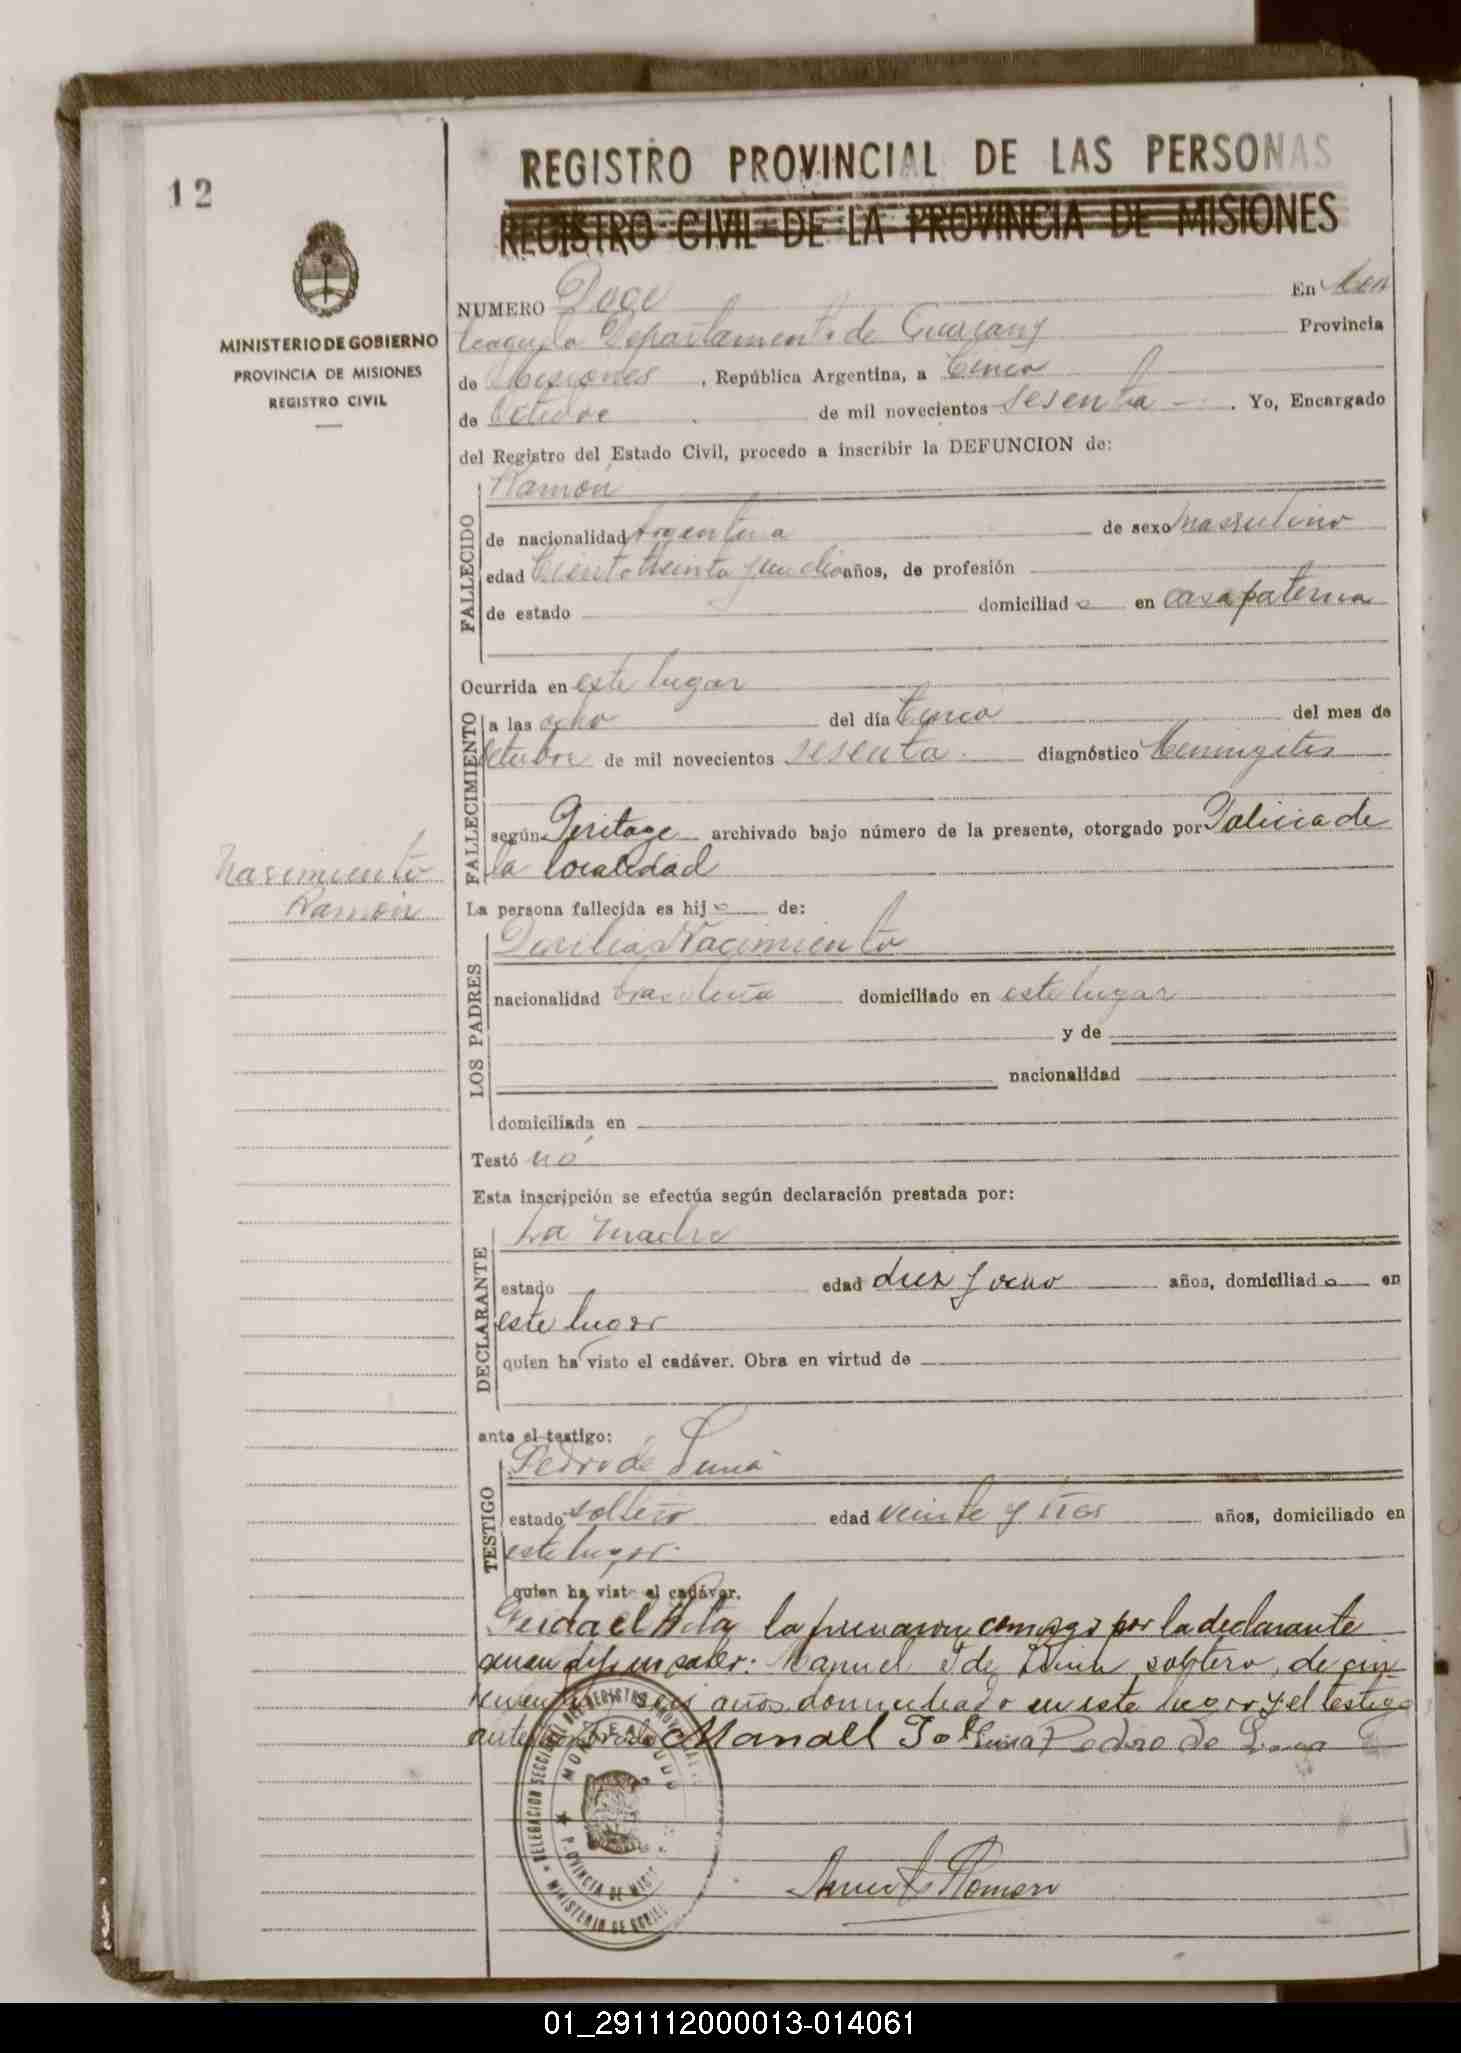 12
REGISTRO PROVINCIAL DE LAS PERSONAS
REGISTRO CIVIL DE LA PROVINCIA DE MISIONES
MINISTERIO DE GOBIERNO
PROVINCIA DE MISIONES
REGISTRO CIVIL
NUMERO Doce En Mon
teagudo Departamento de Guarany Provincia
de Misiones, República Argentina, a Cinco
de Octubre de mil novecientos sesenta. Yo, Encargado
del Registro del Estado Civil, procedo a inscribir la DEFUNCION de:
FALLECIDO
Ramón
de nacionalidad Argentina de sexo masculino
edad Ciento treinta y un dias años, de profesión
de estado domiciliado en casa paterna
Ocurrida en este lugar
FALLECIMIENTO
a las ocho del día Cinco del mes de
Octubre de mil novecientos sesenta diagnóstico Meningitis
según Peritage archivado bajo número de la presente, otorgado por Policia de
la localidad
Nacimiento
Ramón
La persona fallecida es hijo de:
LOS PADRES
Nacimiento
nacionalidad brasileña domiciliado en este lugar
y de
nacionalidad
domiciliada en
Testó no
Esta inscripción se efectúa según declaración prestada por:
DECLARANTE
La madre
estado edad diez y ocho años, domiciliado en
este lugar
quien ha visto el cadáver. Obra en virtud de
ante el testigo:
TESTIGO
Pedro de Lima
estado soltero edad veinte y tres años, domiciliado en
este lugar
quien ha visto el cadáver.
Leida el Acta la firmaron conmigo por la declarante
Manuel J de Lima soltero, de cin
cuenta y seis años domiciliado en este lugar y el testigo
antes nombrado Manoel J de Lima Pedro de Lima
DELEGACION SECCIONAL DEL REGISTRO PROVINCIAL
MONTEAGUDO
PROVINCIA DE MISIONES
MINISTERIO DE GOBIERNO
Romero
01_291112000013-014061